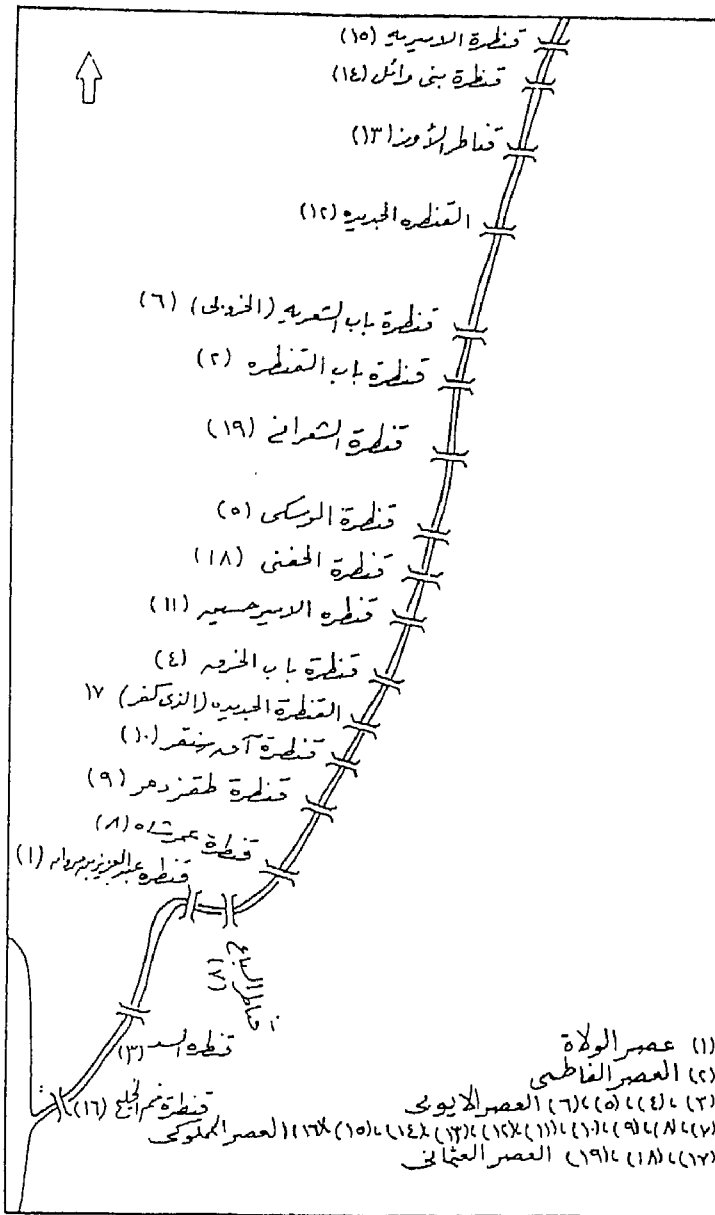 قنطرة الاميريه (١٥)
قنطرة بنى وائل (١٤)
قناطر الأوز (١٣)
القنطره الجديده (١٢)
قنطرة باب الشعريه (الخروبى) (٦)
قنطرة باب القنطره (٢)
قنطرة الشعرانى (١٩)
قنطرة الموسكى (٥)
قنطرة الحفنى (١٨)
قنطره الاميرحسين (١١)
قنطرة باب الخرق (٤)
القنطرة الجديده (الذى كفر) ١٧
قنطرة آق سنقر (١٠)
قنطرة طقزدمر (٩)
قنطرة عمرشاه (٨)
قنطره عبدالعزيز بن مروان (١)
قناطر السباع
(٧)
قنطره السد (٣)
قنطرة فم الخليج (١٦)
(١) عصر الولاة
(٢) العصر الفاطمى
(٣)،(٤)،(٥)،(٦) العصر الايوبى
(٧)،(٨)،(٩)،(١٠)،(١١)،(١٢)،(١٣)،(١٤)،(١٥)،(١٦) العصر المملوكى
(١٧)،(١٨)،(١٩) العصر العثمانى